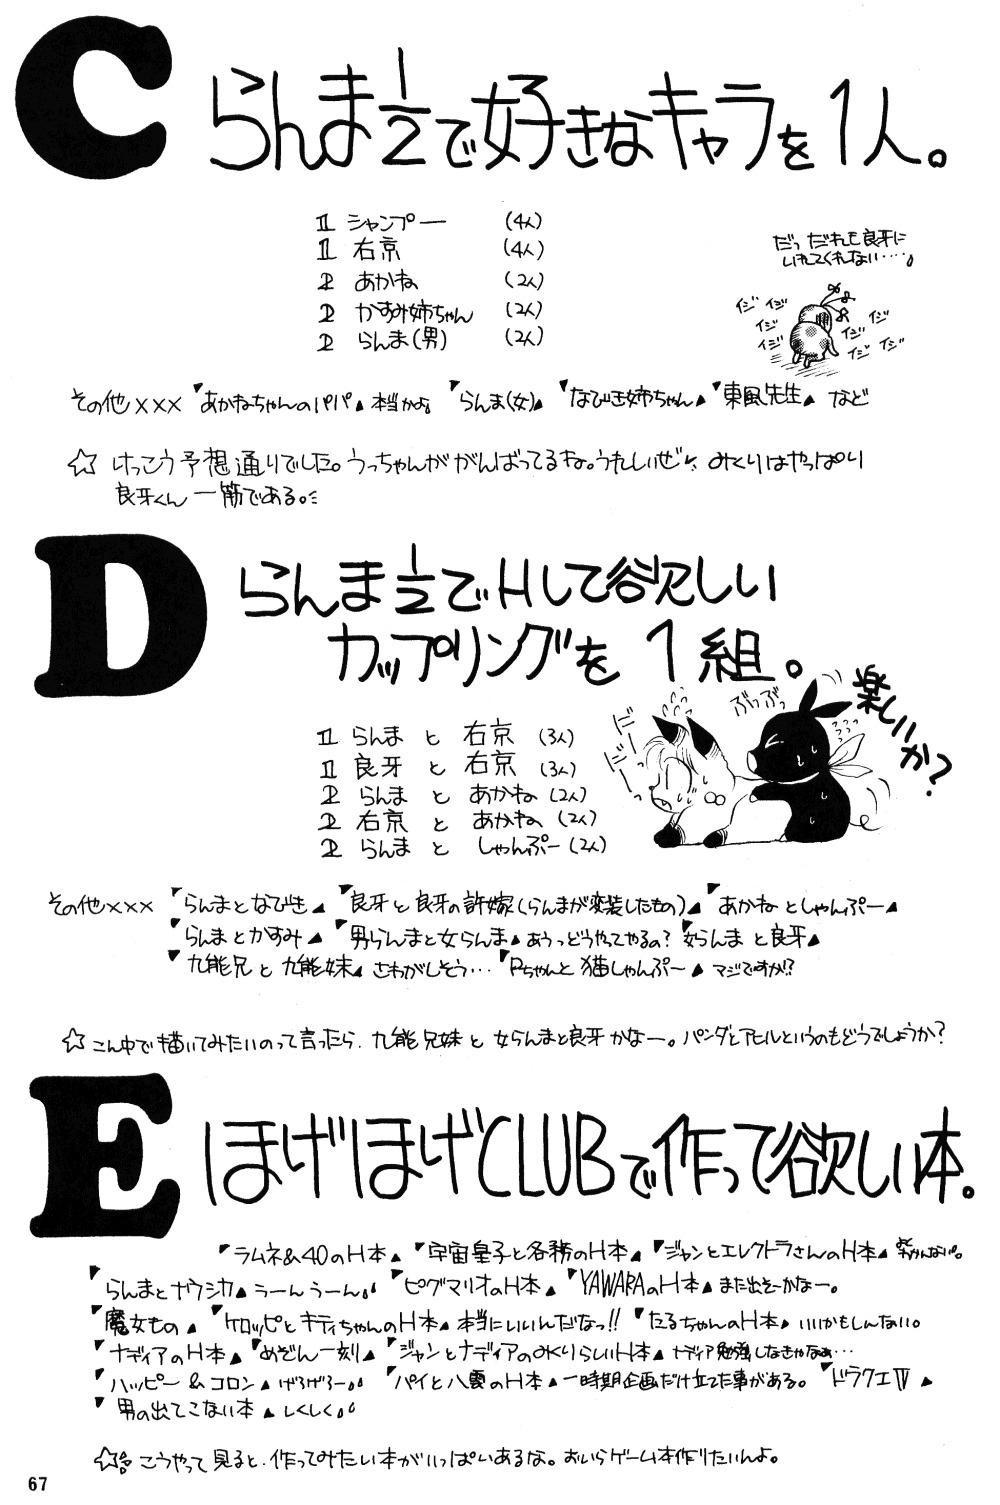 C らんま½で好きなキャラを1人。
1 シャンプー (4人)
1 右京 (4人)
2 あかね (2人)
2 かすみ姉ちゃん (2人)
2 らんま(男) (2人)
だっ だれも良牙に
いれてくれない・・・・。
イジ イジ イジ イジ イジ イジ イジ イジ
その他××× 「あかねちゃんのパパ」本当かよ。 「らんま(女)」 「なびき姉ちゃん」 「東風先生」 など
☆ けっこう予想通りでした。うっちゃんががんばってるね。うれしいぜ みくりはやっぱり
良牙くん一筋である。
D らんま½でHして欲しい
カップリングを1組。
1 らんま と 右京 (3人)
1 良牙 と 右京 (3人)
2 らんま と あかね (2人)
2 右京 と あかね (2人)
2 らんま と しゃんぷー (2人)
ぶっぶっ
楽しいか?
だーだー
その他××× 「らんまとなびき」 「良牙と良牙の許嫁(らんまが変装したもの)」 「あかねとしゃんぷー」
「らんまとかすみ」 「男らんまと女らんま」あうっどうやってやるの? 「女らんまと良牙」
「九能兄と九能妹」さわがしそう・・・ 「Pちゃんと猫しゃんぷー」マジですか!?
☆ こん中で描いてみたいのって言ったら、九能兄妹と女らんまと良牙かなー。パンダとアヒルというのもどうでしょうか?
E ほげほげCLUBで作って欲しい本。
「ラムネ&40のH本」 「宇宙皇子と各務のH本」 「ジャンとエレクトラさんのH本」 わかんない。
「らんまとナウシカ」うーんうーん。 「ピグマリオのH本」 「YAWARAのH本」また出そーかなー。
「魔女もの」 「ケロッピとキティちゃんのH本」本当にいいんだなっ!! 「たるちゃんのH本」いいかもしんない。
「ナディアのH本」 「めぞん一刻」 「ジャンとナディアのみくりらしいH本」ナディア勉強しなきゃなぁ・・・
「ハッピー&コロン」げろげろー。 「パイと八雲のH本」一時期企画だけ立てた事がある。 「ドラクエⅣ」
「男の出てこない本」しくしく。
☆ こうやって見ると、作ってみたい本がいっぱいあるな。おいらゲーム本作りたいんよ。
67